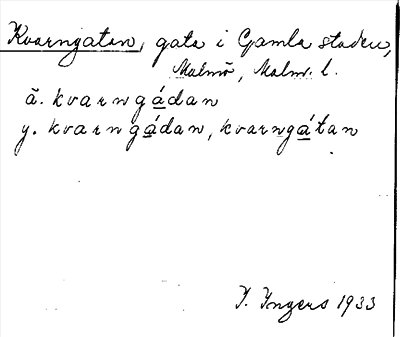 Kvarngatan, gata i Gamla staden,
Malmö, Malm. l.
ä. kvarngádan
y. kvarngádan, kvarngátan
I. Ingers 1933